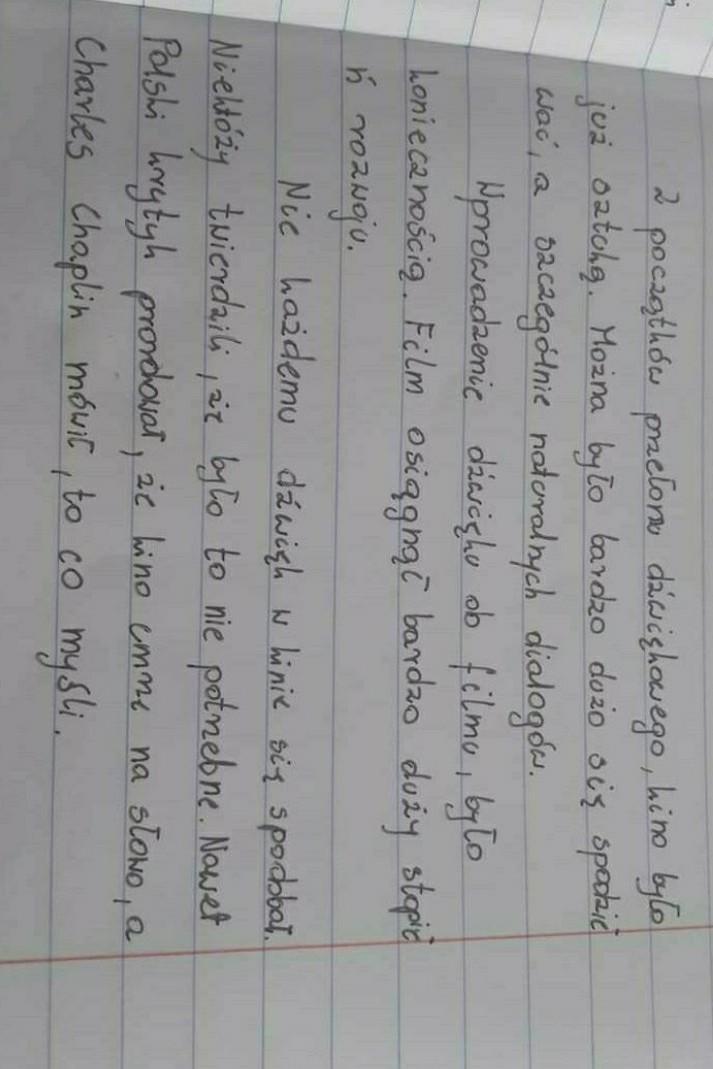 Z początków przełomu dźwiękowego, kino było
już sztuką. Można było bardzo dużo się spodzie
wać, a szczególnie naturalnych dialogów.
Wprowadzenie dźwięku ob filmu, było
koniecznością. Film osiągnąć bardzo duży stopie
ń rozwoju.
Nie każdemu dźwięk w kinie się spodobał.
Niektóży twierdzili, że było to nie potrzebne. Nawet
Polski krytyk że kino umrze na słowo, a
Charles Chaplin mówił, to co myśli.